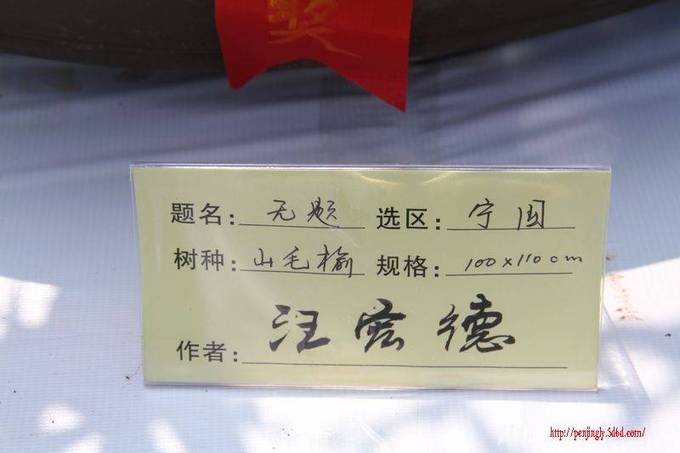 奖
题名: 无题 选区: 宁国
树种: 山毛榆 规格: 100×110cm
作者: 汪宏德
http://penjingly.5d6d.com/